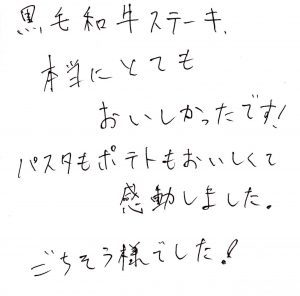 黒毛和牛ステーキ、
本当にとても
おいしかったです!
パスタもポテトもおいしくて
感動しました。
ごちそう様でした!